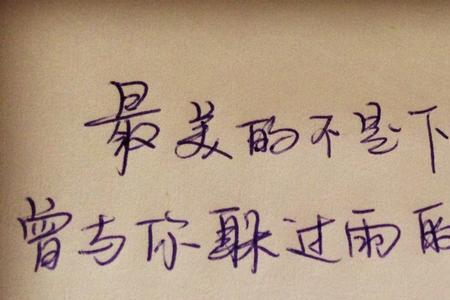 最美的不是下
曾与你躲过雨的